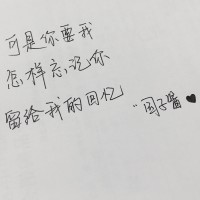 可是你要我
怎样忘记你
留给我的回忆
"团子酱♥